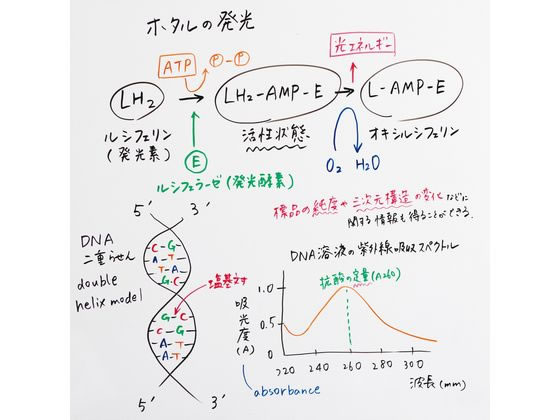 ホタルの発光
ATP
P-P
光エネルギー
LH2
LH2-AMP-E
L-AMP-E
ルシフェリン
(発光素)
活性状態
オキシルシフェリン
E
O2
H2O
ルシフェラーゼ(発光酵素)
標品の純度や三次元構造の変化などに
関する情報も得ることができる.
5′
3′
DNA
二重らせん
double
helix model
C-G
A-T
T-A
G-C
塩基対
G-C
C-G
A-T
A-T
5′
3′
DNA溶液の紫外線吸収スペクトル
核酸の定量(A260)
吸光度(A)
1.0
0.5
0
220
240
260
280
300
波長(mm)
absorbance